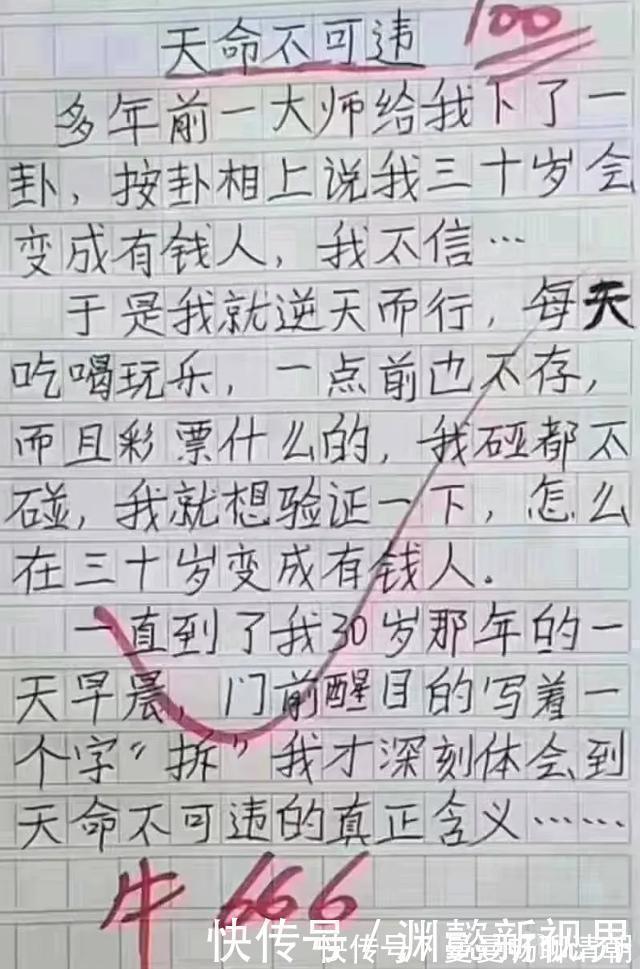 天命不可违 100
多年前一大师给我下了一
卦，按卦相上说我三十岁会
变成有钱人，我不信…
于是我就逆天而行，每天
吃喝玩乐，一点前也不存，
而且彩票什么的，我碰都不
碰，我就想验证一下，怎么
在三十岁变成有钱人．
一直到了我30岁那年的一
天早晨，门前醒目的写着一
个字“拆”我才深刻体会到
天命不可违的真正含义……
牛 666
快传号／渊懿新视界
快传号／曼曼畅聊清朝